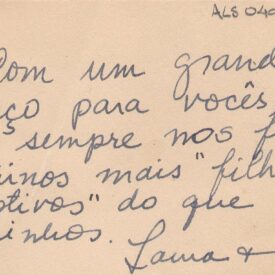 ALS 040
Com um grand
ço para vocês
sempre nos f
inos mais "filh
tivos" do que
inhos.
Laura +